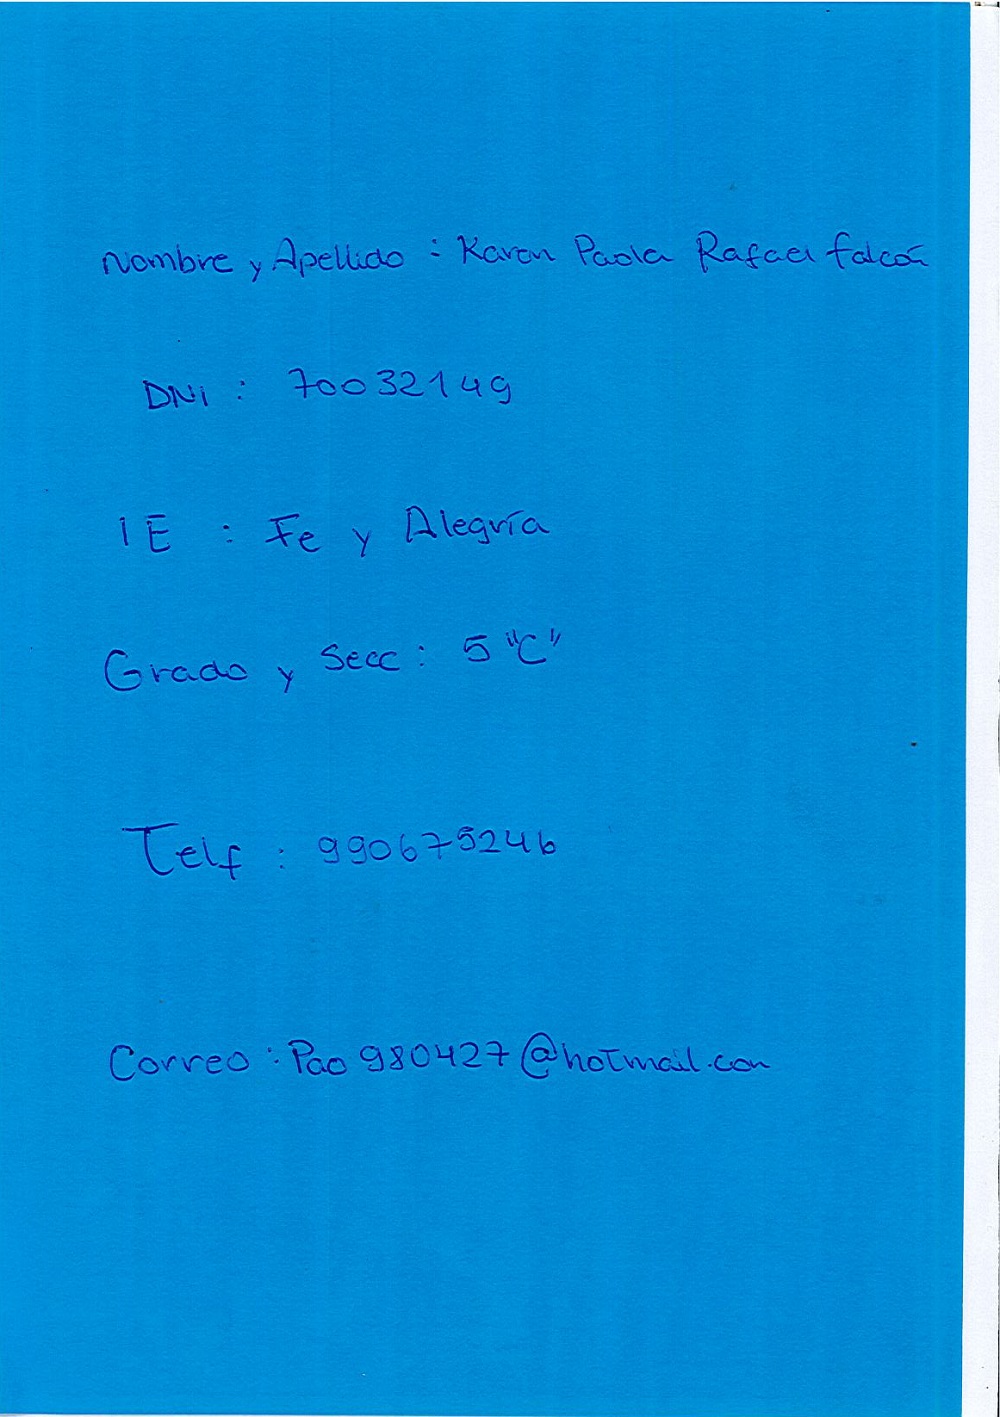 Nombre y Apellido : Karen Paola Rafael falcón
DNI : 70032149
IE : Fe y Alegría
Grado y Secc : 5 "C"
Telf : 990675246
Correo : Pao980427@hotmail.com